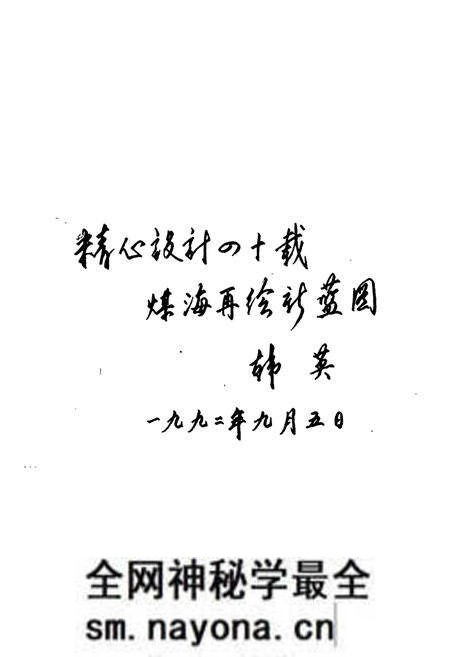 精心設計四十載
煤海再绘新蓝图
韩英
一九九二年九月五日
全网神秘学最全
sm.nayona.cn